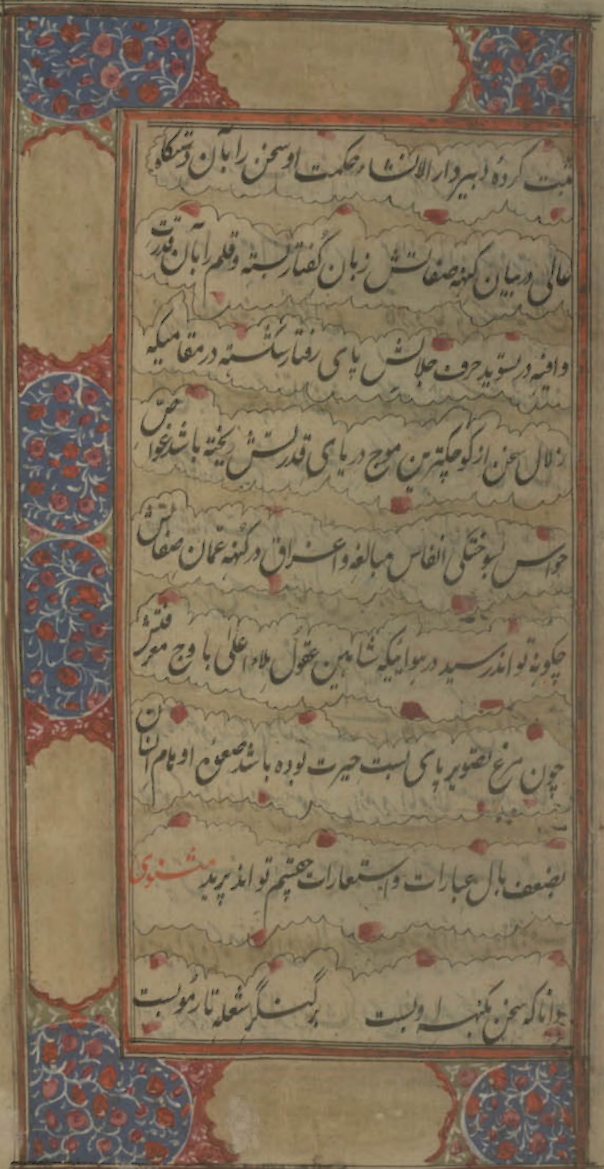 ثبت کردهٔ دبیر دار الانشاء حکمت او سخن را بآن دستکاه
عالی در بیان کنه صفاتش زبان گفتار بسته و قلم را بآن قدرت
وافیه در تسوید حرف جلالش پای رفتار شکسته در مقامیکه
زلال سخن از کوچکترین موج دریای قدرتش ریخته باشد غواص
حواس بسوختکی انفاس مبالغه و اغراق در کنه عمان صفاتش
چکونه تواند رسید در هوائیکه شاهین عقول ملاء اعلی باوج معرفتش
چون مرغ تصویر پای بست حیرت بوده باشد صعوه اوهام انسان
بضعف بال عبارات و استعارات چشم تواند پرید مثنوی
دانا که سخن بکنه او بست بر کنگر شعله تار مو بست